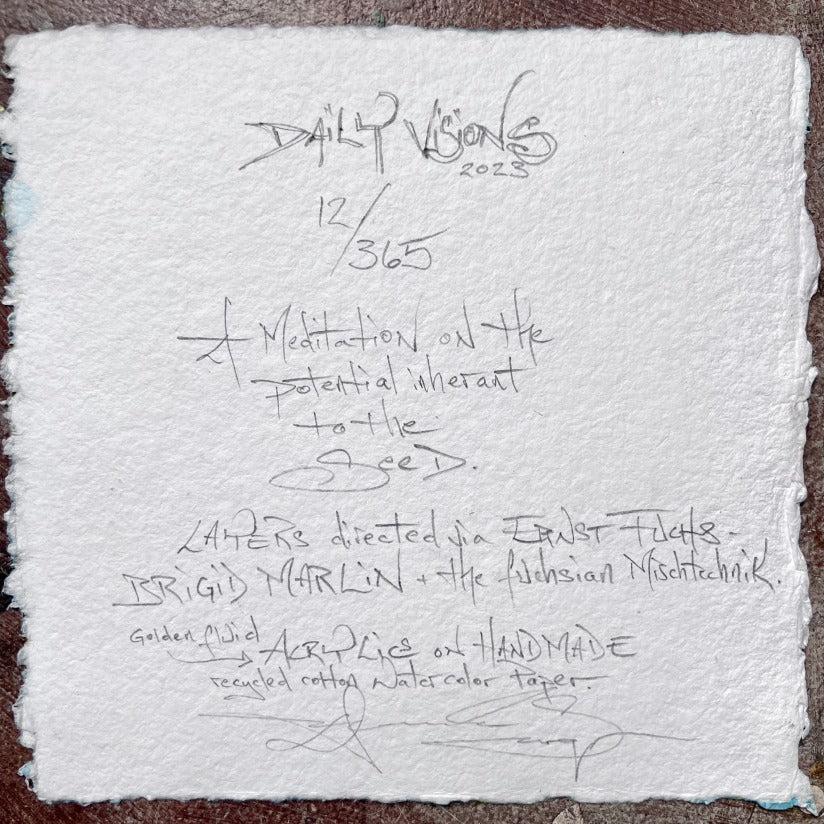 DAiLY ViSiONS
2023
12/365
A Meditation on the
potential inherant
to the
SeeD.
LAYERS directed via ERNST FUCHS -
BRiGiD MARLiN + the fuchsian Mischtechnik.
Golden fluid
→ ACRYLiCS on HANDMADE
recycled cotton Watercolor Paper.